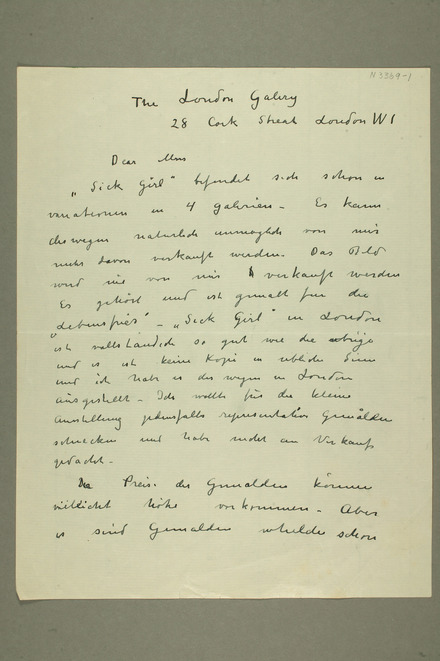 N 3369-1
The London Galery
28 Cork Street London W1
Dear Mrs
„Sick Girl" befindet sich schon in
variationen in 4 galerien – Es kann
deswegen natürlich unmöglich von mir
mehr davon verkauft werden. Das Bild
wird nie von mir verkauft werden
Es gehört und ist gemalt für die
„Lebensfries" – „Sick Girl" in London
ist vollständich so gut wie die übrige
und es ist keine Kopi in übliche Sinn
und ich habe es deswegen in London
ausgestellt – Ich wollte für die kleine
Ausstellung jedenfalls representative Gemälden
schicken und habe nicht an Verkauf
gedacht –
Die Preise der Gemälden können
vielleicht hohe vorkommen – Aber
es sind Gemälden welche schon